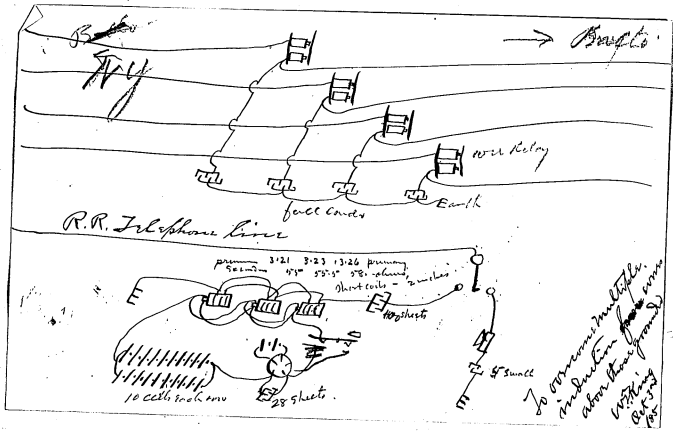 Buffo
NY
Buffo
WU Relay
full condr
Earth
R.R. Telephone line
primary 3.21 3.23 13.26 primary
55 55.5 58. ohms
Short coils - 2 inches
sheets
small
10 cells each
28 sheets.
To overcome multiple
induction from wires
above those grounded
working
Oct 3rd
85